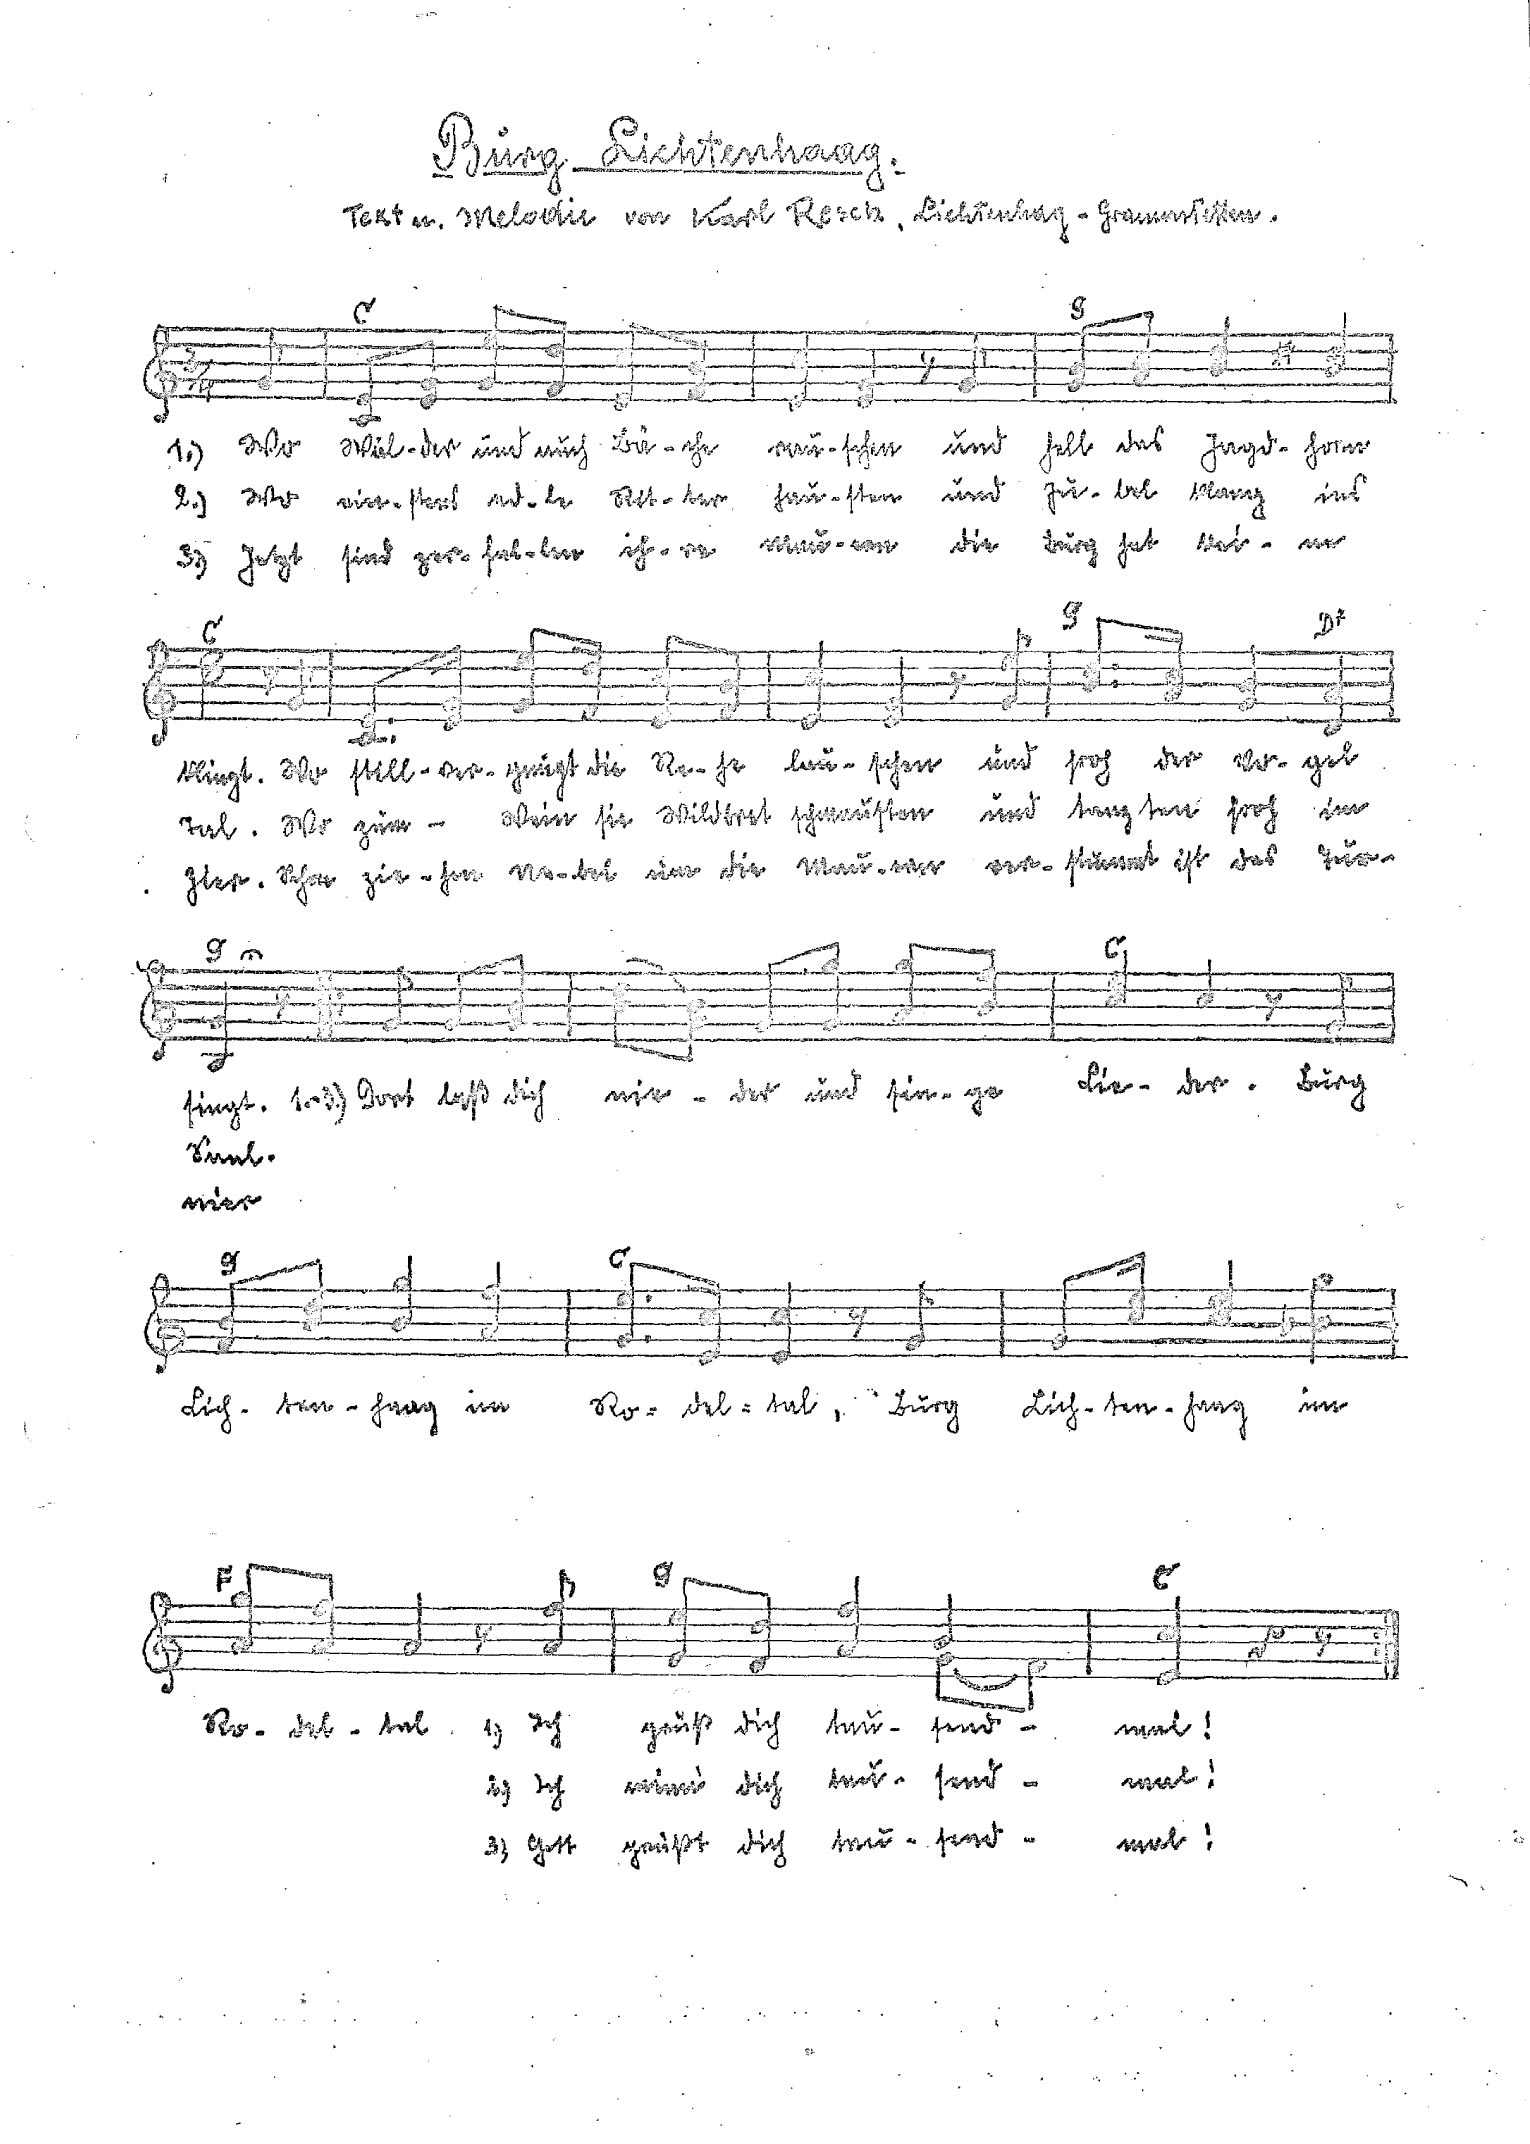 Burg Lichtenhaag.
Text u. Melodie von Karl Resch, Lichtenhag - Gramastetten.
C G
3/4
1.) Wo Wäl-der und auch Bä-che rau-schen und hell das Jagd-horn
2.) Wo einstens ed-le Rit-ter hau-sten und Ju-bel klang ins
3.) Jetzt sind zer-fal-len ih-re Mau-ern die Burg hat kei-ne
C G D7
klingt. Wo still-ver-gnügt die Re-he lau-schen und froh der Vo-gel
Tal. Wo zum - Wein sie Wildbret schmausten und tanzten froh im
Zier. Schon zie-hen Ne-bel um die Mau-ern ver-stummt ist das Tur-
G C
singt. 1.-3.) Dort laß dich nie-der und sin-ge Lie-der. Burg
Saal.
nier
G C
Lich-ten-haag im Ro-del-tal, Burg Lich-ten-haag im
F G C
Ro-del-tal. 1) Ich grüß dich tau-send-mal!
2) Ich dich tau-send-mal!
3) Gott grüßt dich tau-send-mal!